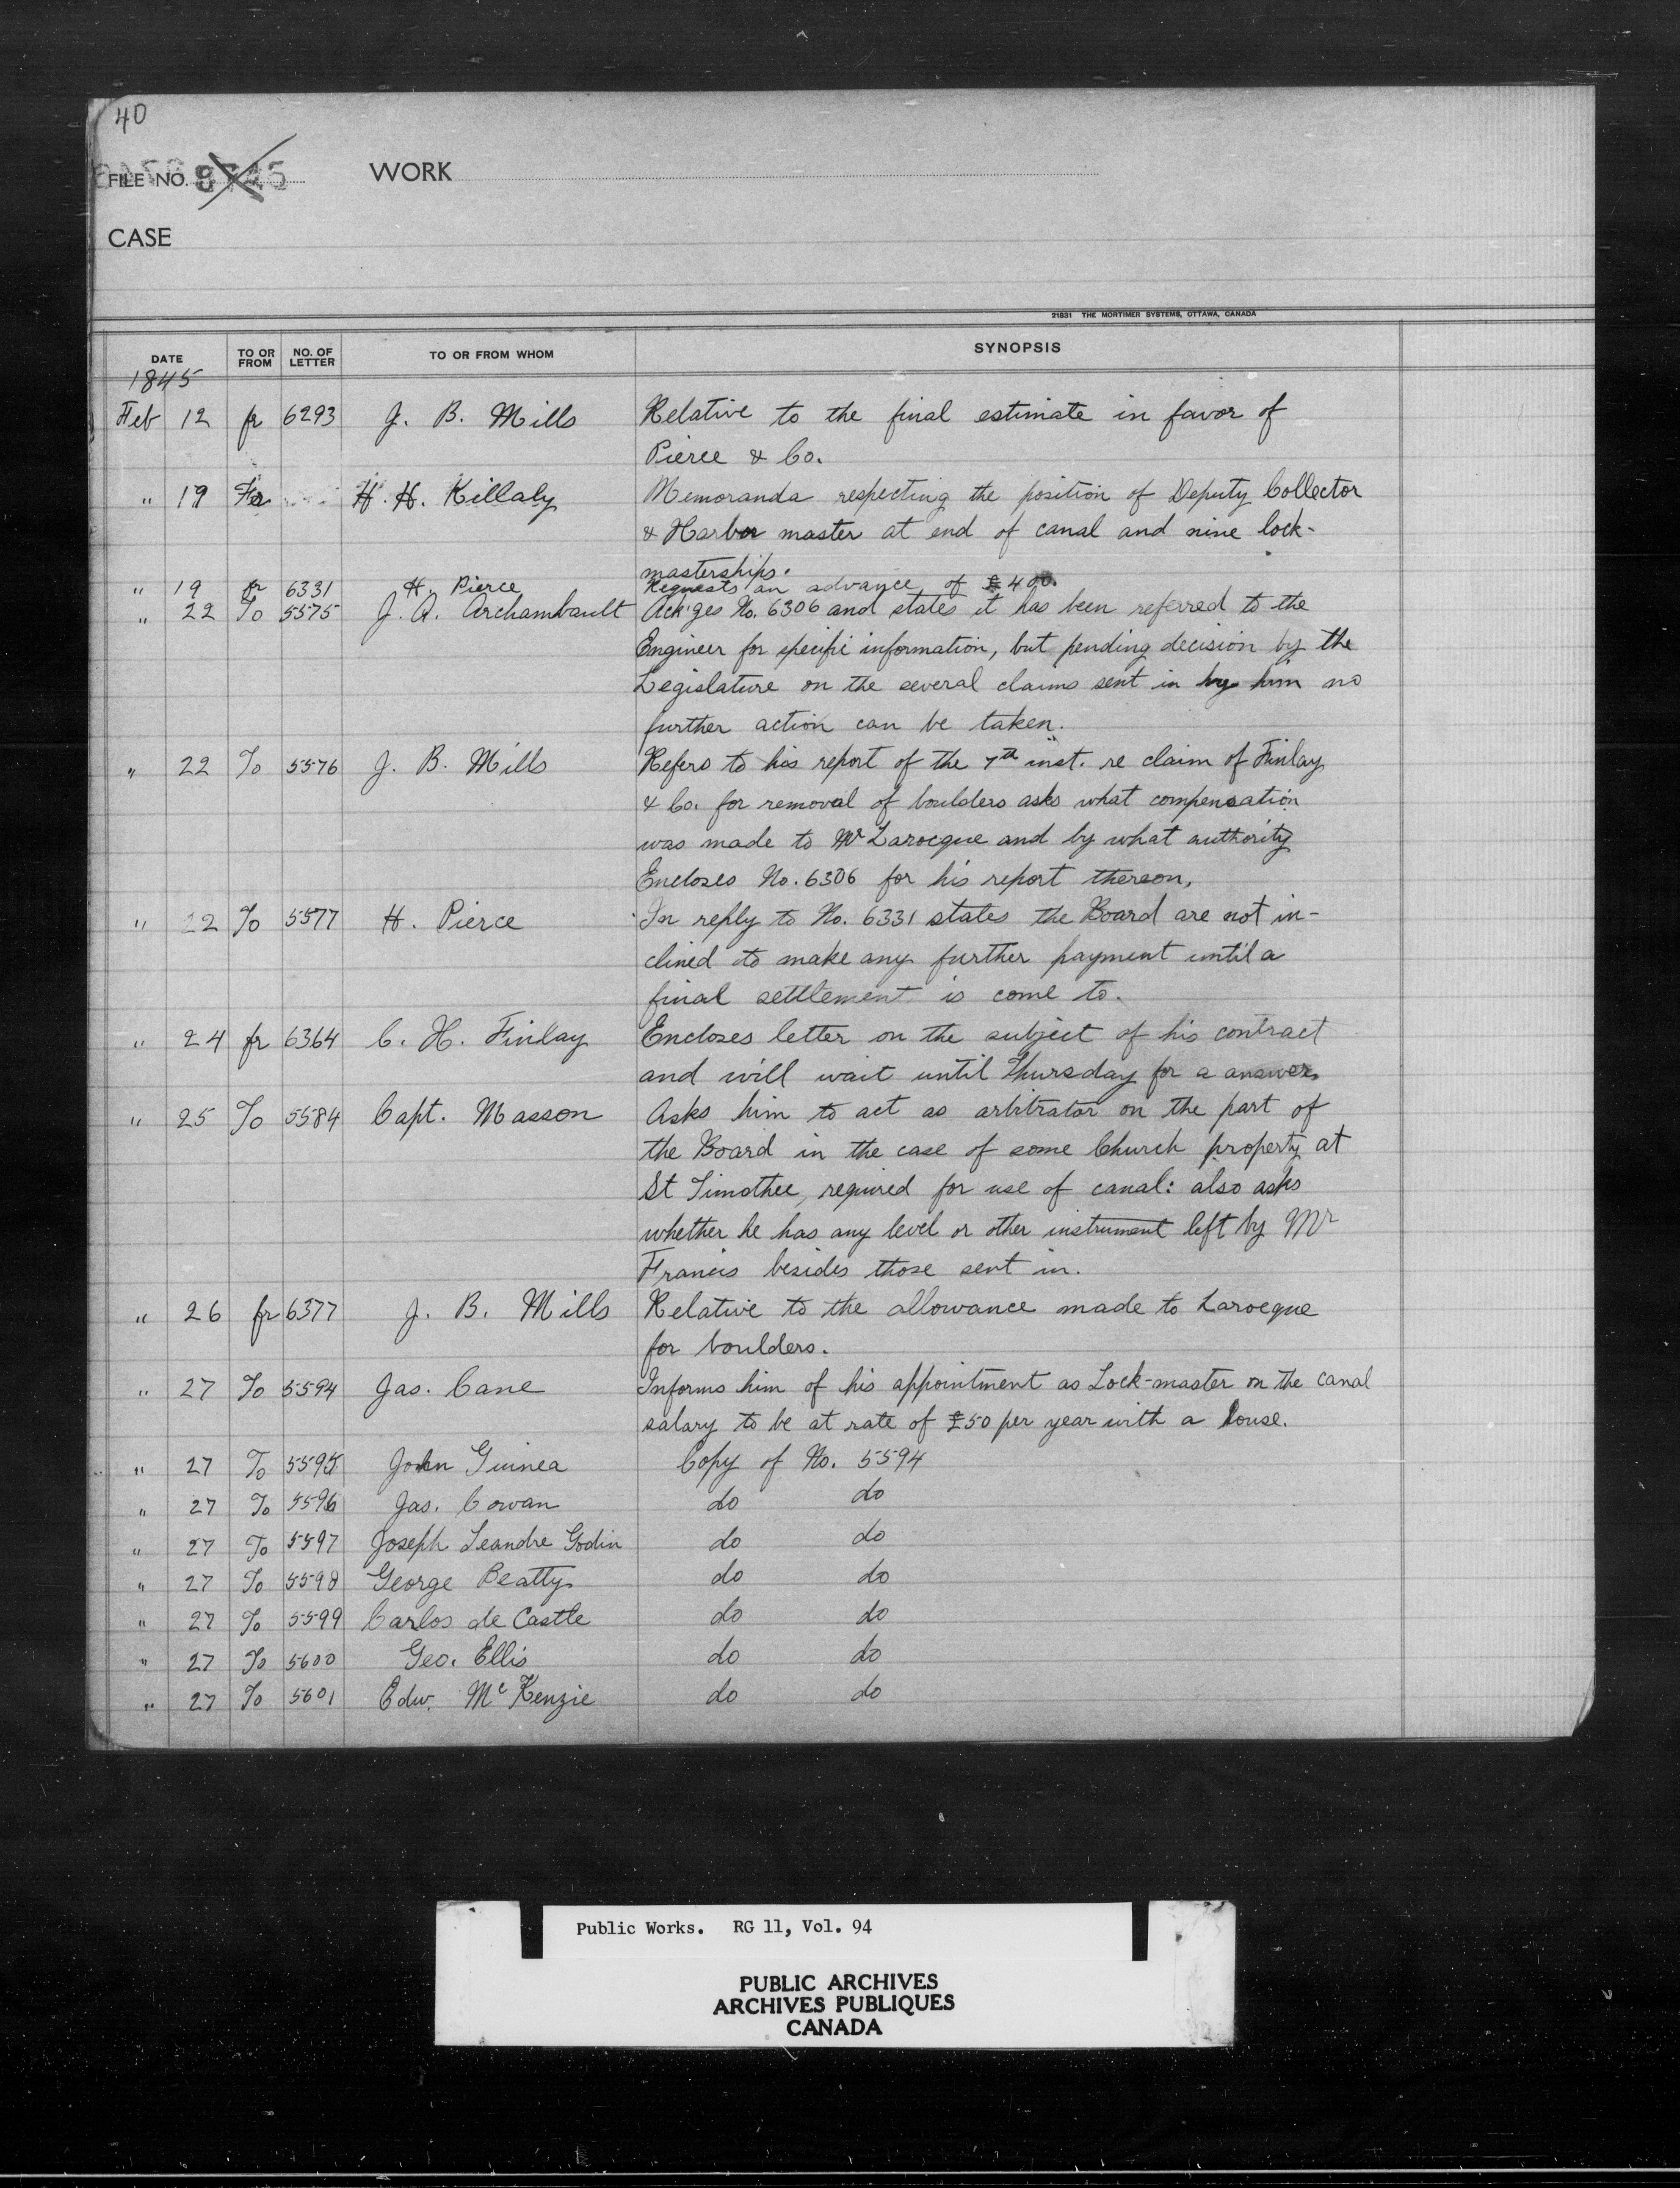 40
FILE NO. 8745 WORK
CASE
21831 THE MORTIMER SYSTEMS, OTTAWA, CANADA
DATE TO OR FROM NO. OF LETTER TO OR FROM WHOM SYNOPSIS
1845
Feb 12 fr 6293 J. B. Mills Relative to the final estimate in favor of
Pierce & Co.
" 19 Fr H. H. Killaly Memoranda respecting the position of Deputy Collector
& Harbor master at end of canal and nine lock-
masterships.
" 19 fr 6331 H. Pierce Requests an advance of £400.
" 22 To 5575 J. A. Archambault Ack'ges No. 6306 and states it has been referred to the
Engineer for specific information, but pending decision by the
Legislature on the several claims sent in by him no
further action can be taken.
" 22 To 5576 J. B. Mills Refers to his report of the 7th inst. re claim of Finlay
& Co. for removal of boulders asks what compensation
was made to Mr Larocque and by what authority
Encloses No. 6306 for his report thereon,
" 22 To 5577 H. Pierce In reply to No. 6331 states the Board are not in-
clined to make any further payment until a
final settlement is come to.
" 24 fr 6364 C. H. Finlay Encloses letter on the subject of his contract
and will wait until Thursday for a answer.
" 25 To 5584 Capt. Masson Asks him to act as arbitrator on the part of
the Board in the case of some Church property at
St Timothee, required for use of canal: also asks
whether he has any level or other instrument left by Mr
Francis besides those sent in.
" 26 fr 6377 J. B. Mills Relative to the allowance made to Larocque
for boulders.
" 27 To 5594 Jas. Cane Informs him of his appointment as Lock-master on the canal
salary to be at rate of £50 per year with a house.
" 27 To 5595 John Guinea Copy of No. 5594
" 27 To 5596 Jas. Cowan do do
" 27 To 5597 Joseph Leandre Godin do do
" 27 To 5598 George Beatty do do
" 27 To 5599 Carlos de Castle do do
" 27 To 5600 Geo. Ellis do do
" 27 To 5601 Edw. McKenzie do do
Public Works. RG 11, Vol. 94
PUBLIC ARCHIVES
ARCHIVES PUBLIQUES
CANADA